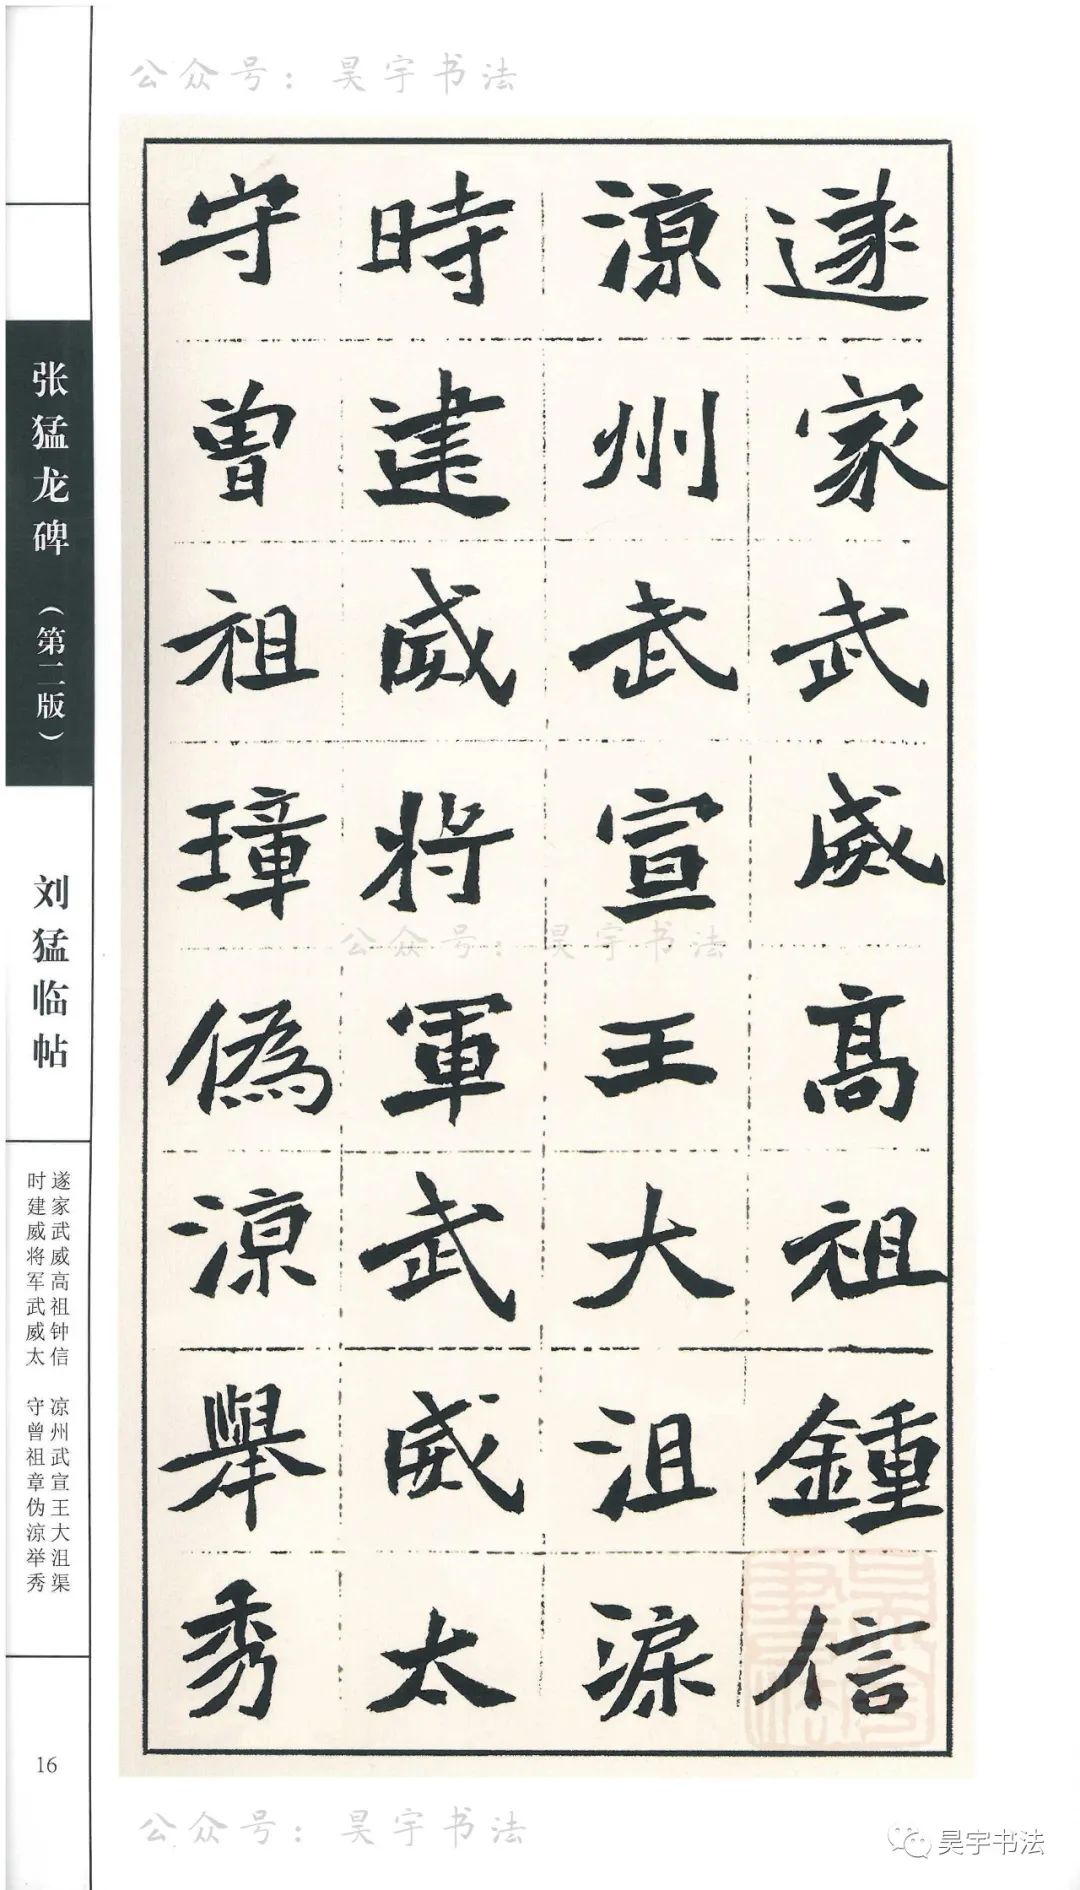 公众号：昊宇书法
遂家武威高祖鍾信
涼州武宣王大沮渠
時建威将軍武威太
守曾祖璋偽涼舉秀
公众号：昊宇书法
张猛龙碑（第二版）
刘猛临帖
遂家武威高祖钟信 凉州武宣王大沮渠
时建威将军武威太 守曾祖章伪凉举秀
16
公众号：昊宇书法
昊宇书法